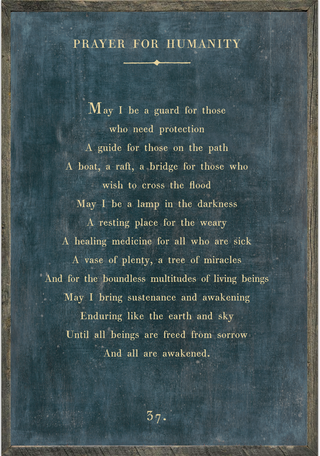 PRAYER FOR HUMANITY
May I be a guard for those
who need protection
A guide for those on the path
A boat, a raft, a bridge for those who
wish to cross the flood
May I be a lamp in the darkness
A resting place for the weary
A healing medicine for all who are sick
A vase of plenty, a tree of miracles
And for the boundless multitudes of living beings
May I bring sustenance and awakening
Enduring like the earth and sky
Until all beings are freed from sorrow
And all are awakened.
37.